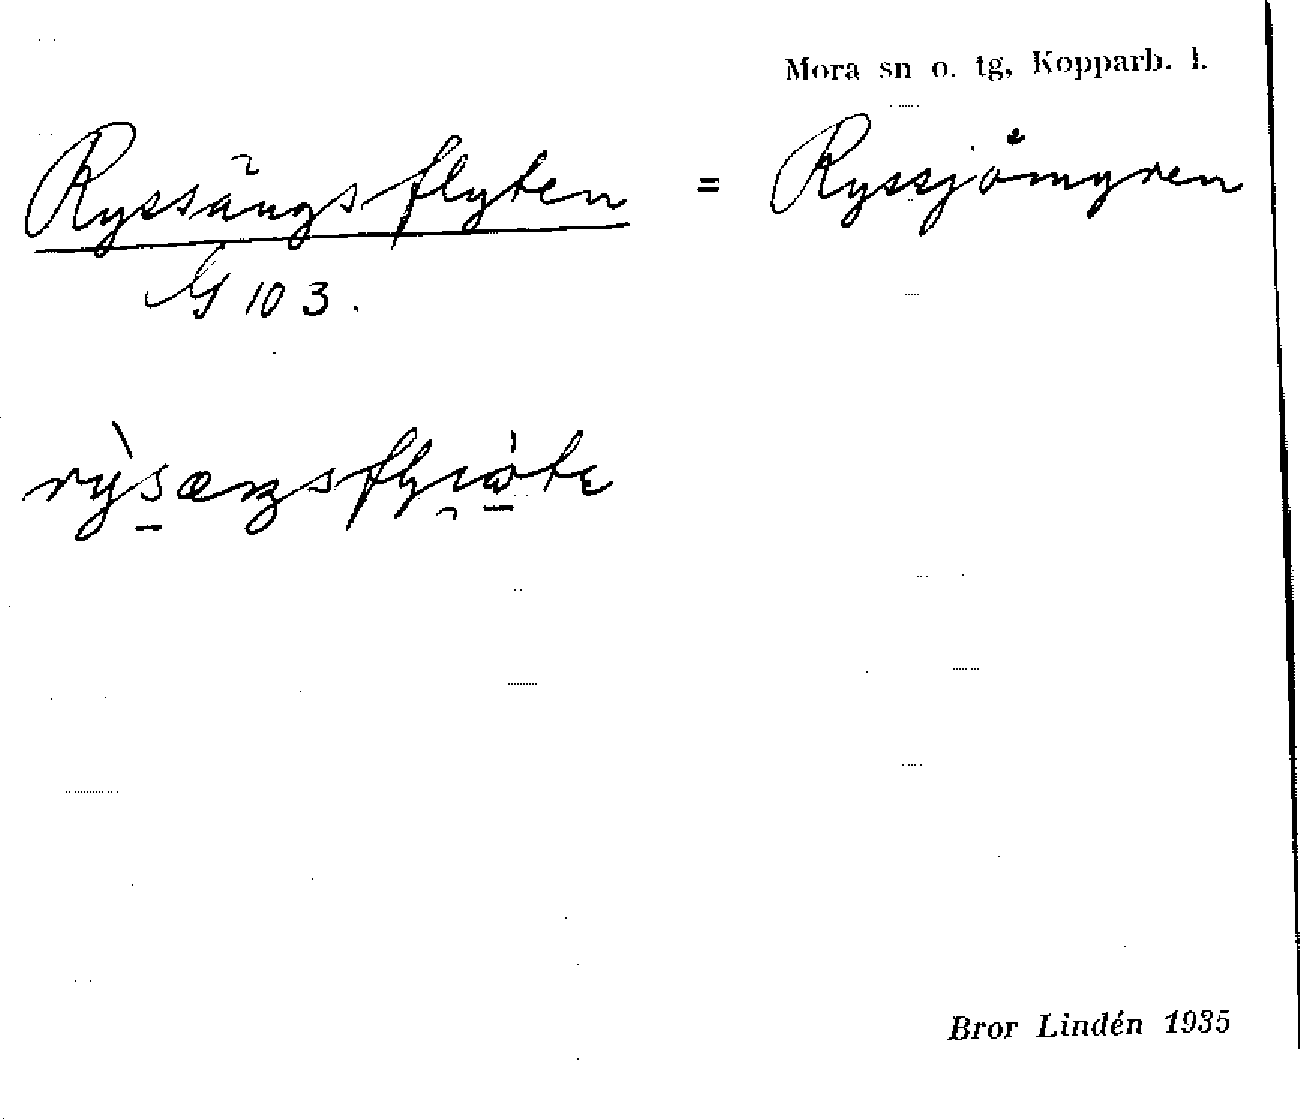 Mora sn o. tg, Kopparb. l.
Ryssängsflyten = Ryssjömyren
G 103.
Bror Lindén 1935